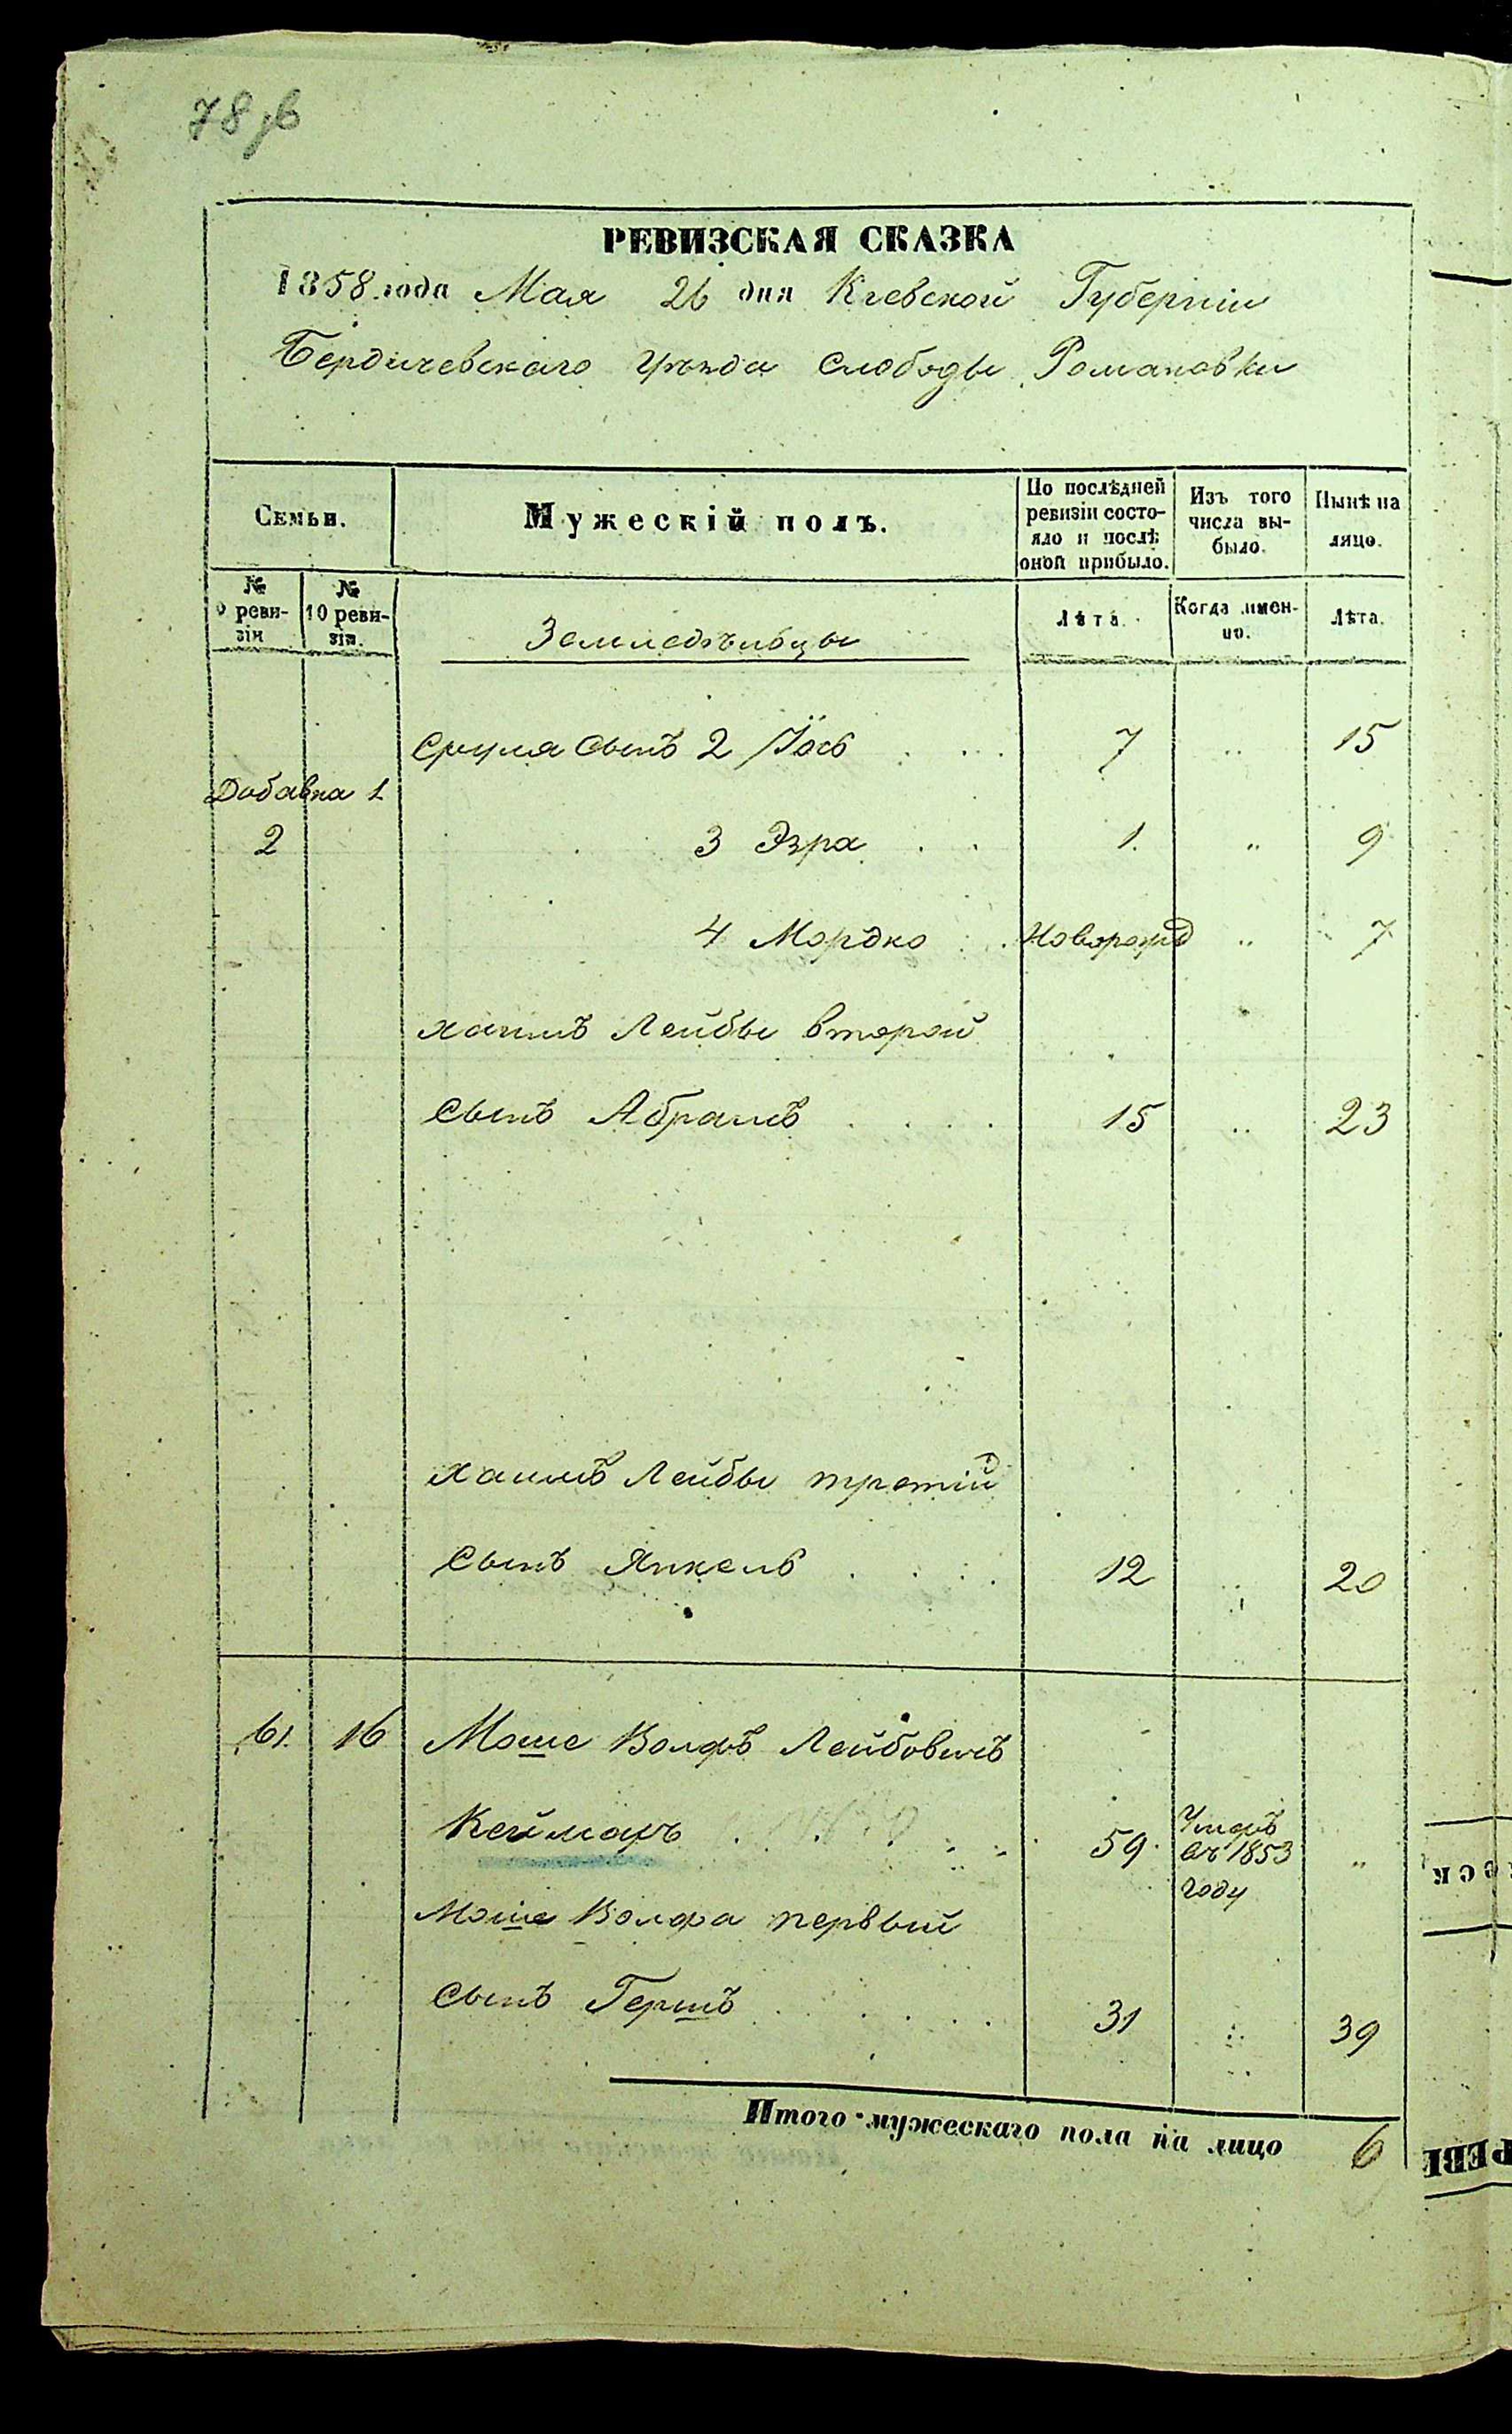 78 об
РЕВИЗСКАЯ СКАЗКА
1858 года Мая 26 дня Кіевской Губерніи
Бердичевскаго уѣзда Слободы Романовки
Семьи.
Мужескій полъ.
По послѣдней ревизіи состояло и послѣ оной прибыло.
Изъ того числа выбыло.
Нынѣ на лицо.
№ 9 ревизіи
№ 10 ревизіи.
Земледѣльцы
Лѣта.
Когда именно.
Лѣта.
Сруля Сынъ 2 Іось . . . 7 „ 15
Добавка 1
2 3 Эзра . . 1. „ 9
4 Мордко . . Новорожд „ 7
Хаимъ Лейбы второй
Сынъ Абрамъ . . . . 15 „ 23
Хаимъ Лейбы третій
Сынъ Янкель . . . . 12 „ 20
61. 16 Моше Волфъ Лейбовичъ
Кеймаръ . . . . 59. Умеръ въ 1853 году „
Моше Волфа первый
Сынъ Гершъ . . . . . 31 „ 39
Итого мужескаго пола на лицо 6